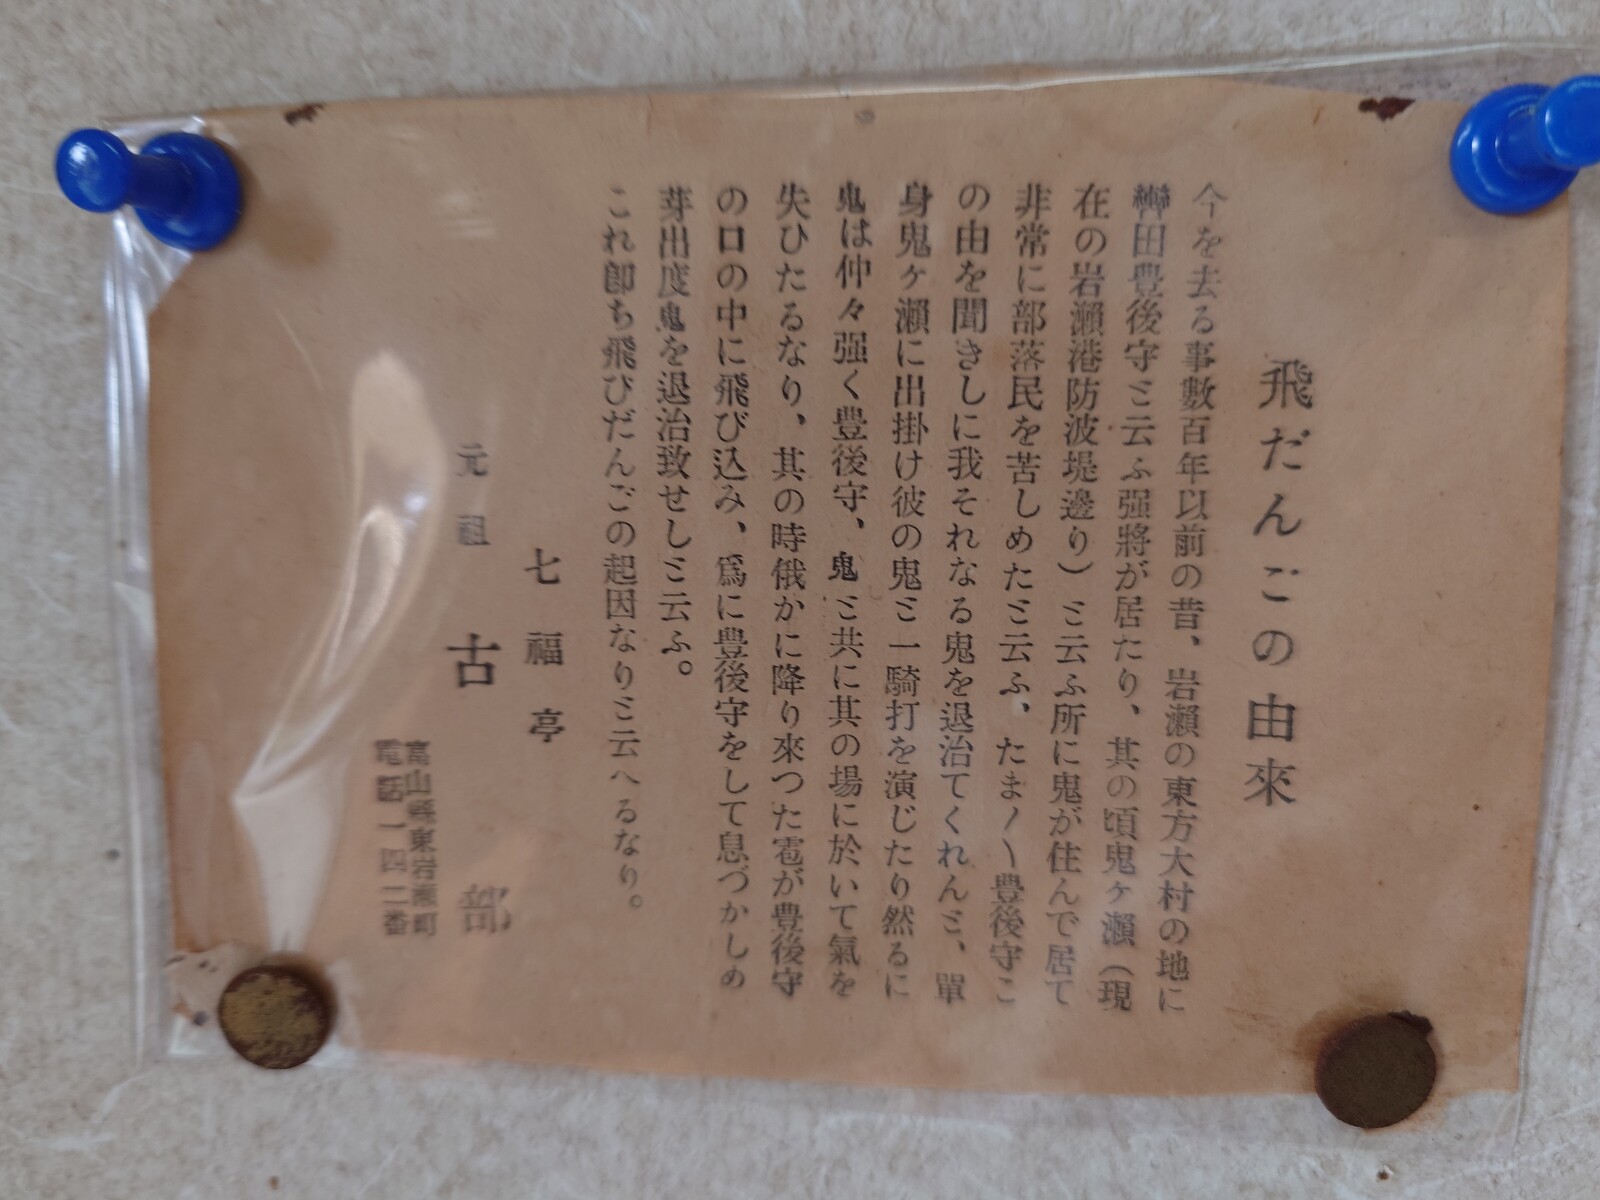 飛だんごの由來
今を去る事數百年以前の昔、岩瀨の東方大村の地に
轡田豊後守ミ云ふ强將が居たり、其の頃鬼ヶ瀨（現
在の岩瀨港防波堤邊り）ミ云ふ所に鬼が住んで居て
非常に部落民を苦しめたミ云ふ、たま〳〵豊後守こ
の由を聞きしに我それなる鬼を退治てくれんミ、單
身鬼ヶ瀨に出掛け彼の鬼ミ一騎打を演じたり然るに
鬼は仲々强く豊後守、鬼ミ共に其の場に於いて氣を
失ひたるなり、其の時俄かに降り來つた雹が豊後守
の口の中に飛び込み、爲に豊後守をして息づかしめ
芽出度鬼を退治致せしミ云ふ。
これ卽ち飛びだんごの起因なりミ云へるなり。
七福亭
元祖 古部
富山縣東岩瀨町
電話一四二番